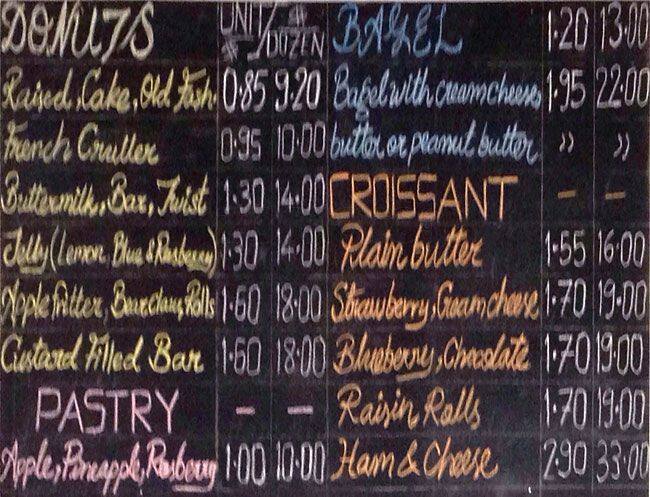 DONUTS UNIT/$ $/DOZEN
Raised, Cake, Old Fash. 0.85 9.20
French Cruller 0.95 10.00
Buttermilk, Bar, Twist 1.30 14.00
Jelly (Lemon, Blue & Rasberry) 1.30 14.00
Apple Fritter, Bearclaw, Rolls 1.60 18.00
Custard Filled Bar 1.60 18.00
PASTRY — —
Apple, Pineapple, Rasberry 1.00 10.00
BAGEL 1.20 13.00
Bagel with cream cheese, 1.95 22.00
butter or peanut butter ›› ››
CROISSANT – –
Plain butter 1.55 16.00
Strawberry, Cream cheese 1.70 19.00
Blueberry, Chocolate 1.70 19.00
Raisin Rolls 1.70 19.00
Ham & Cheese 2.90 33.00